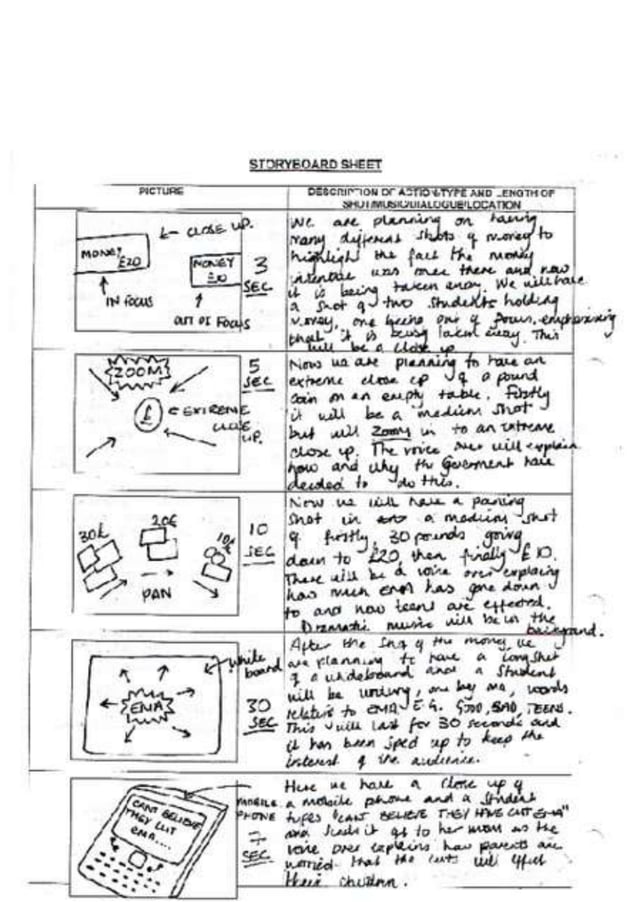 STORYBOARD SHEET
PICTURE
DESCRIPTION OF ACTION/TYPE AND LENGTH OF
SHOT/MUSIC/DIALOGUE/LOCATION
← CLOSE UP.
MONEY
£20
MONEY
£10
IN FOCUS
OUT OF FOCUS
3
SEC
We are planning on having
many different shots of money to
highlight the fact the money
was once there and now
it is being taken away. We will have
a shot of two students holding
money, one being out of focus, emphasising
that it is being taken away. This
will be a close up
ZOOM
£
← EXTREME
CLOSE
UP.
5
SEC
Now we are planning to have an
extreme close up of a pound
coin on an empty table. Firstly
it will be a medium shot
but will zoom in to an extreme
close up. The voice over will explain
how and why the Goverment have
decided to do this.
30£
20£
10£
PAN
10
SEC
Now we will have a panning
shot in a medium shot
of firstly, 30 pounds going
down to £20, then finally £10.
There will be a voice over explaing
how much EMA has gone down
to and how teens are effected.
Dramatic music will be in the
background.
EMA
white
board
30
SEC
After the shot of the money, we
are planning to have a long shot
of a whiteboard and a student
will be writing, one by one, words
relating to EMA E.G. GOOD, BAD, TEENS.
This will last for 30 seconds and
it has been sped up to keep the
interest of the audience.
CANT BELIEVE
THEY CUT
EMA...
MOBILE
PHONE
7
SEC
Here we have a close up of
a mobile phone and a student
types "CANT BELIEVE THEY HAVE CUT EMA"
and sends it to her mom as the
voice over explains how parents are
worried that the cuts will effect
their children.